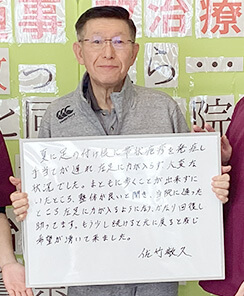 治療
っ
ら…
院
夏に足の付け根に帯状疱疹を発症し
手当てが遅れ右足に力が入らず大変な
状況でした。まともに歩くことが出来ずに
いたところ、整体が良いと聞き、当院に通った
ところ右足に力が入るようになり、かなり回復し
助かってます。もう少し続けると元に戻ると感じ
希望が湧いて来ました。
佐竹敏久